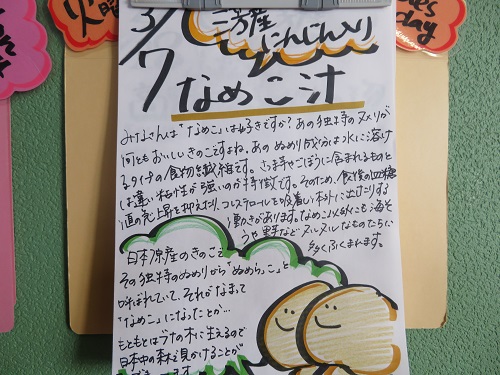 火曜
es
day
3/7
三芳産
にんじん入り
なめこ汁
みなさんは「なめこ」は好きですか？あの独特のヌメリが
何ともおいしいきのこですよね。あのぬめり成分は水に溶け
るタイプの食物繊維です。さま芋やごぼうに含まれるものと
は違い粘性が強いのが特徴です。そのため、食後の血糖
値の急上昇を抑えたり、コレステロールを吸着し体外に出したりする
働きがあります。なめこ以外にも海そ
うや里芋などヌルヌルなものたちに
多くふくまれます。
日本原産のきのこで
その独特のぬめりから「ぬめらっこ」と
呼ばれていて、それがなまって
「なめこ」になったとか…
もともとはブナの木に生えるので
日本中の森で見かけることが